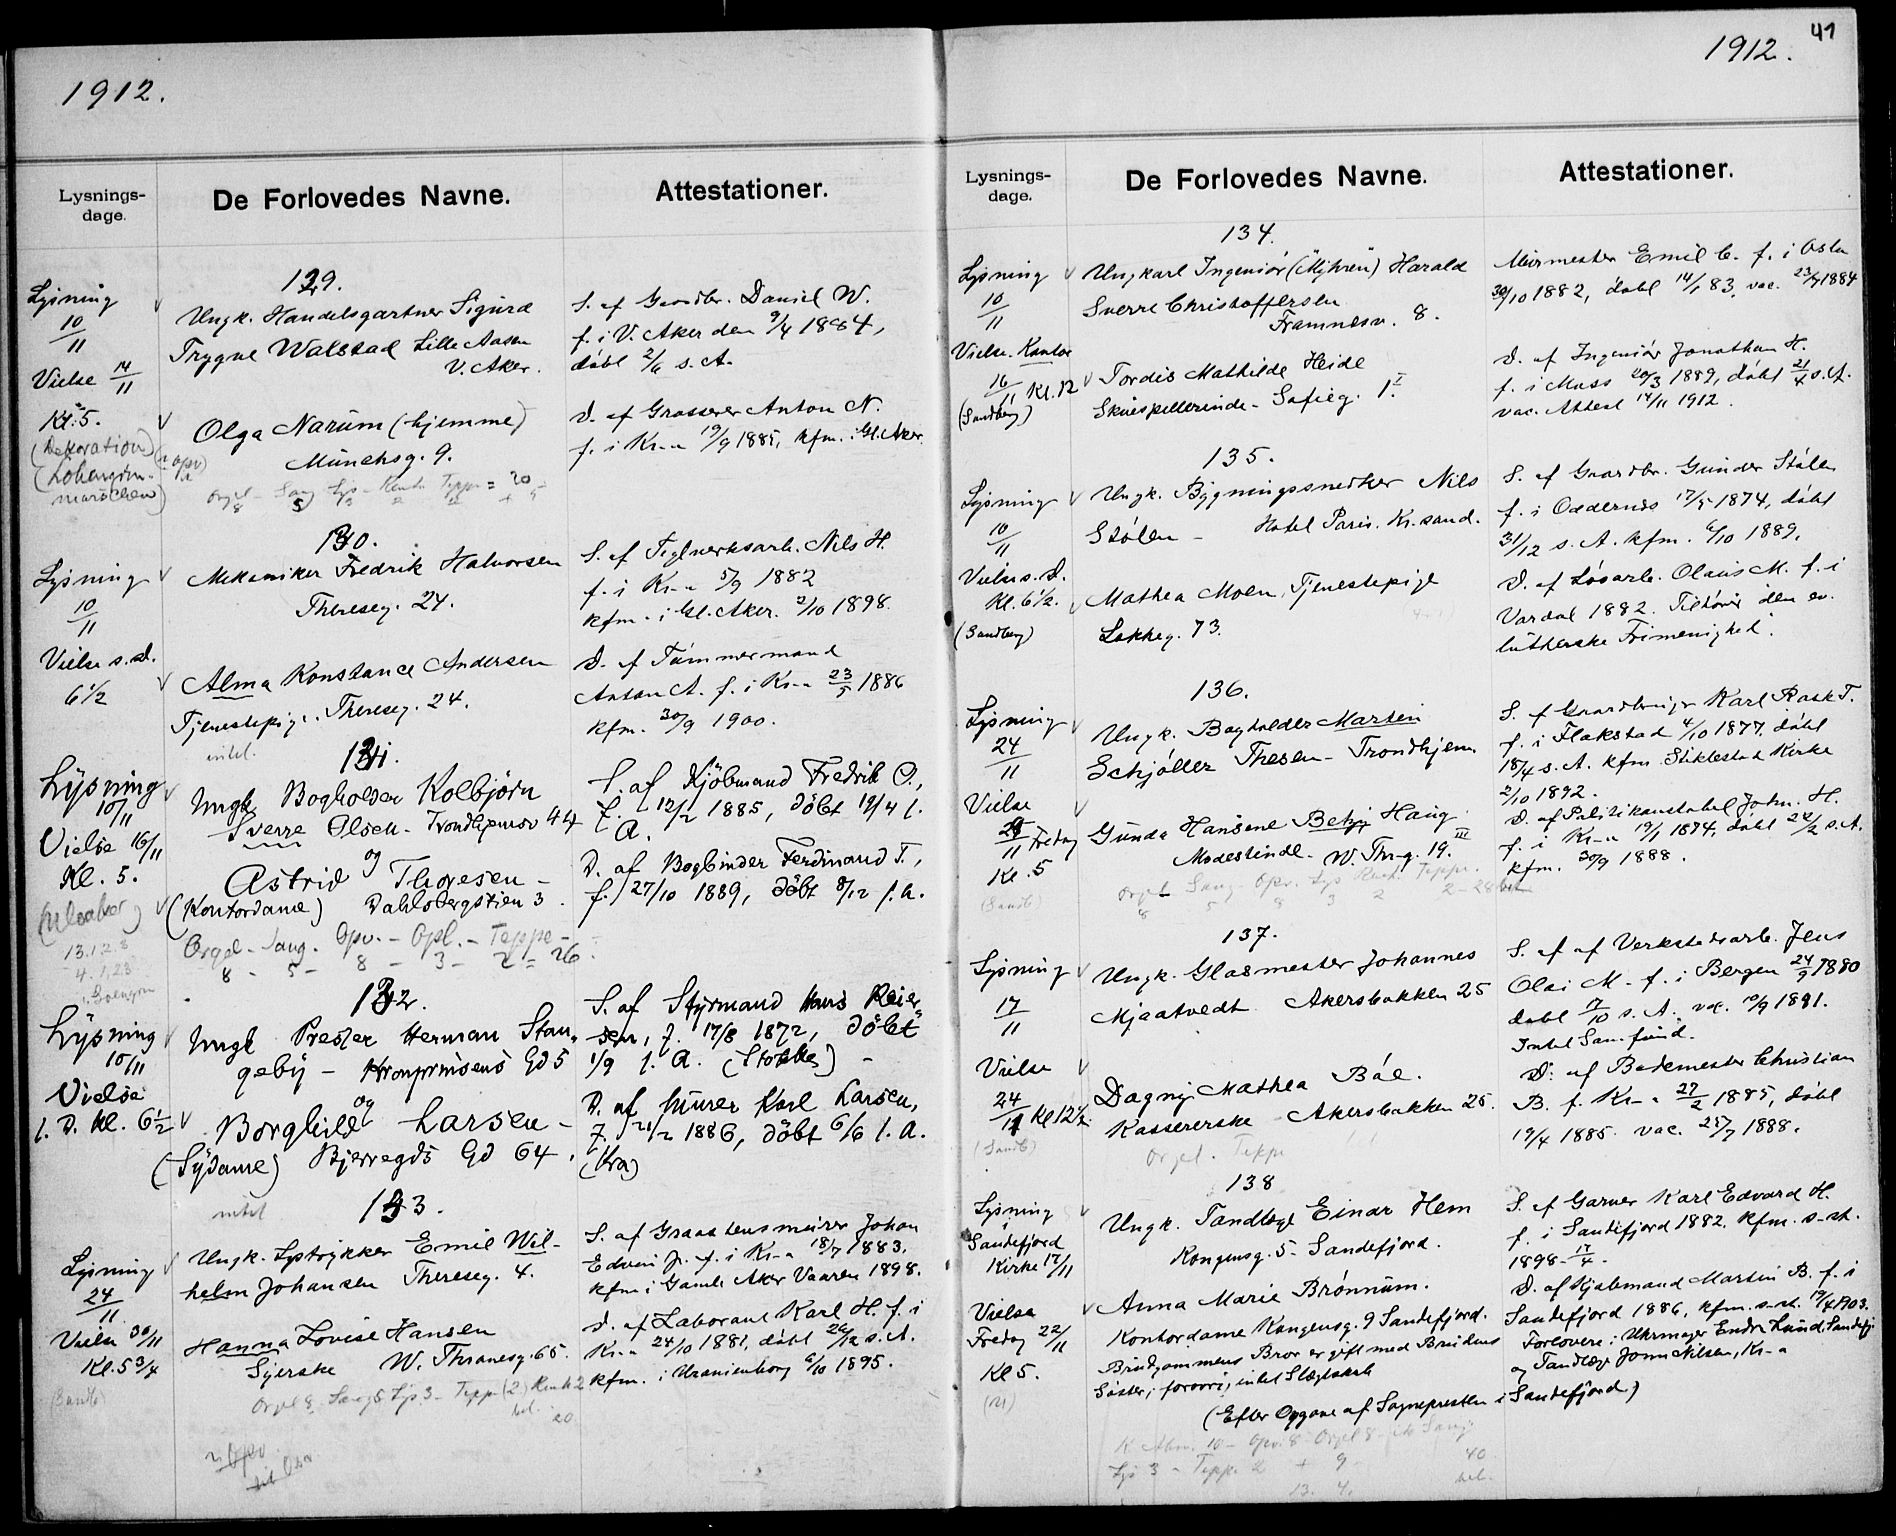 1912.
Lysnings-
dage.
De Forlovedes Navne.
Attestationer.
129.
Lysning
10/11
Vielse 14/11
Kl. 5.
(Dekoration)
(Lohengrin-
marschen)
Ungk. Handelsgartner Sigurd
Trygve Walstad Lille Aasen
V. Aker.
S. af Gaardbr. Daniel W.
f. i V. Aker den 9/4 1884,
döbt 2/6 s. A.
Olga Narum (hjemme)
Munchsg. 9.
D. af Grosserer Anton N.
f. i Kr.a 19/9 1885, kfm. i Gl. Aker.
Orgel - Sang Lys - Teppe = 20
130.
Lysning
10/11
Vielse s. D.
6 1/2
Mekaniker Fredrik Halvorsen
Thereseg. 24.
S. af Teglverksarb. Nils H.
f. i Kr.a 5/9 1882
kfm. i Gl. Aker. 2/10 1898.
Alma Konstance Andersen
Tjenestepige. Thereseg. 24.
intet.
D. af Tömmermand
Anton A. f. i Kr.a 23/5 1886
kfm. 30/9 1900.
131.
Lysning
10/11
Vielse 16/11
Kl. 5.
Ungk. Bogholder Kolbjörn
Sverre Olsen - Trondhjemsv 44
og
Astrid Thoresen -
(Kontordame) Dahlsbergstien 3.
S. af Kjöbmand Fredrik O.,
f. 12/2 1885, döbt 19/4 s.
A.
D. af Bogbinder Ferdinand T.,
f. 27/10 1889, döbt 8/12 s. A.
Orgel - Sang - Opv. - Opl. - Teppe -
8 - 5 - 8 - 3 - 2 = 26
132.
Lysning
10/11
Vielse
s. D. Kl. 6 1/2
Ungk. Presser Herman Stan-
geby - Kronprinsens Gd 5
og
Borghild Larsen -
(Sydame) Bjerregds Gd 64.
intet
S. af Styrmand Hans Reier-
sen, f. 17/8 1872, döbt
1/9 s. A. (Stokke) -
D. af Murer Karl Larsen,
f. 21/2 1886, döbt 6/6 s. A.
(Kra)
133.
Lysning
24/11
Vielse 30/11
Kl. 5 3/4
(Sandb)
Ungk. Lystrykker Emil Wil-
helm Johansen Thereseg. 4.
S. af Graastensmurer Johan
Edvin J. f. i Kr.a 18/7 1883.
kfm i Gamle Aker Vaaren 1898.
Hanna Lovise Hansen
Syerske W. Thranesg. 65
D. af Laborant Karl H. f. i
Kr.a 24/10 1881, döbt 26/12 s. A.
kfm. i Uranienborg 6/10 1895.
Orgel 8 Sang 5 Lys 3 - Teppe (2)
20
1912.
41
Lysnings-
dage.
De Forlovedes Navne.
Attestationer.
134.
Lysning
10/11
Vielse. Kontor
16/11 Kl. 12
(Sandberg)
Ungkarl Ingeniör (Myhren) Harald
Sverre Christoffersen
Framnesv. 8.
Murmester Emil C. f. i Oslo
30/10 1882, döbt 14/1 83, vac. 23/4 1884
Tordis Mathilde Heide
Skuespillerinde - Sofieg. 1. I
D. af Ingeniör Jonathan H.
f. i Moss 20/3 1889, döbt 21/4 s. A.
vac. Attest 14/11 1912.
135.
Lysning
10/11
Vielse s. D.
Kl. 6 1/2.
(Sandberg)
Ungk. Bygningssnedker Nils
Stölen - Hotel Paris. Kr.sand.
S. af Gaardbr. Gunder Stölen
f. i Oddernes 17/5 1874, döbt
31/12 s. A. kfm. 6/10 1889.
Mathea Moen, Tjenestepige
Lakkeg. 73.
D. af Lösarb. Olaus M. f. i
Vardal 1882. Tilhörer den ev.
lutherske Frimenighed.
136.
Lysning
24/11
Vielse
29/11 Fredag
Kl. 5
(Sandb)
Ungk. Bogholder Martin
Schjöller Thesen - Trondhjem
S. af Gaardbruger Karl Rask T.
f. i Flakstad 4/10 1877, döbt
18/4 s. A. kfm Stiklestad Kirke
2/10 1892.
Gunda Hansine Betzy Haug
Modestinde - W. Thr.g. 19. III
D. af Politikonstabel John. H.
f. i Kr.a 19/1 1874, döbt 24/2 s. A.
kfm. 30/9 1888.
Orgel Sang Opv. Lys Teppe
8 5 8 3 2 2 - 28
137.
Lysning
17/11
Vielse
24/11 Kl 12 1/2
(Sandb)
Ungk. Glasmester Johannes
Mjaatvedt Akersbakken 25
S. af af Verkstedsarb. Jens
Olai M. f. i Bergen 24/9 1880
döbt 17/10 s. A. vac. 10/9 1891.
Intet Samfund.
Dagny Mathea Böe.
Kassererske Akersbakken 25.
D. af Bademester Christian
B. f. Kr.a 27/2 1885, döbt
19/4 1885. vac. 25/7 1888.
Orgel. Teppe
138
Lysning
i
Sandefjord
Kirke 17/11
Vielse
Fredag 22/11
Kl 5.
Ungk. Tandlæge Einar Hem
Kongensg. 5 - Sandefjord.
S. af Garver Karl Edvard H.
f. i Sandefjord 1882. kfm. s. st.
1898 - 17/4.
Anna Marie Brönnum.
Kontordame Kongensg. 9 Sandefjord.
Brudgommens Bror er gift med Brudens
Söster; forövrig intet Slegtskab
D. af Kjöbmand Martin B. f. i
Sandefjord 1886, kfm. s. st. 19/4 1903.
Forlovere: Uhrmager Endre Lund, Sandefj
og Tandlæge John Nilsen, Kr.a
(Efter Opgave af Sognepresten i Sandefjord)
Lys 3 - Teppe 2 + 9
40